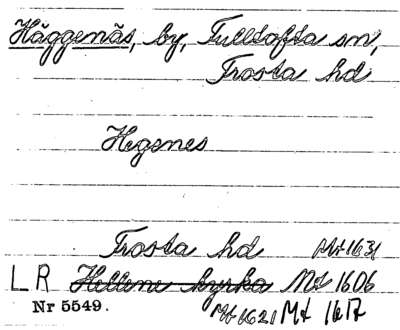 Häggenäs, by, Fulltofta sn,
Frosta hd
Hegsnes
Frosta hd Mt 1631
LR Hellene kyrka Mt 1606
Nr 5549. Mt 1621 Mt 1617